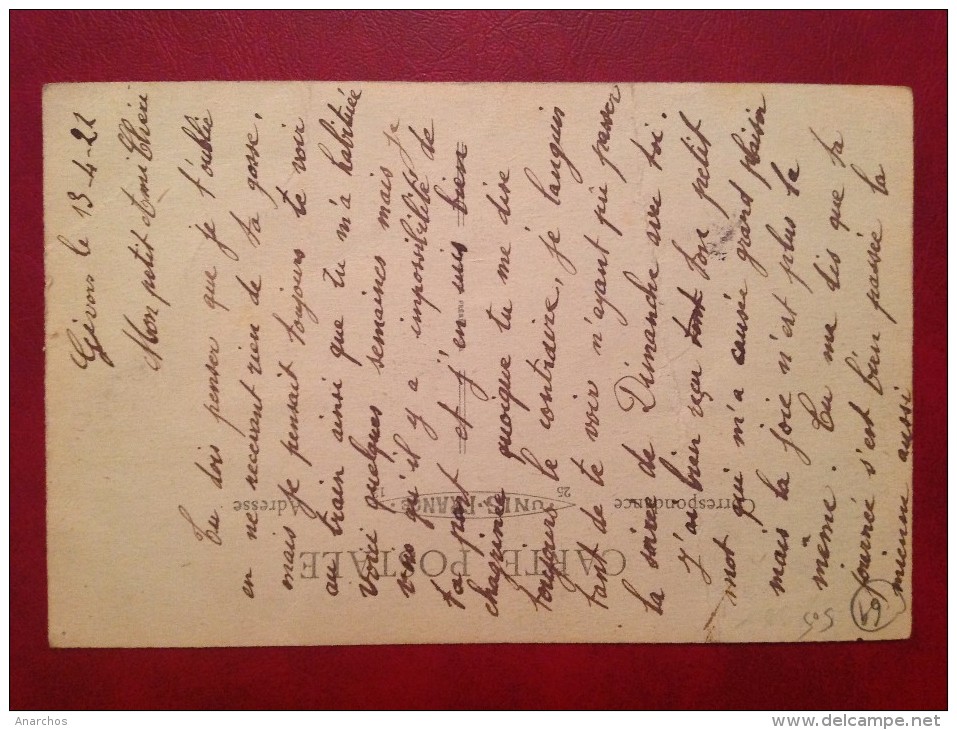 Givors le 13-4-22
Mon petit Ami Chéri
Tu dois penser que je t'oublie
en ne recevant rien de ta gosse,
mais je pensait toujours te voir
au train ainsi que tu m'a habituée
voici quelques semaines mais je
vois qu'il y a impossibilité de
ta part et j'en suis bien
chagrinée quoique tu me dise
toujours le contraire, je languis
tant de te voir n'ayant pû passer
la soirée de Dimanche avec toi.
J'ai bien reçu ton petit
mot qui m'a causée grand plaisir
mais la joie n'est plus la
même. Tu me dis que ta
journée s'est bien passée la
mienne aussi
CARTE POSTALE
Correspondance
Adresse
UNIS-FRANCE
25
505
59
Anarchos
delcampe.net